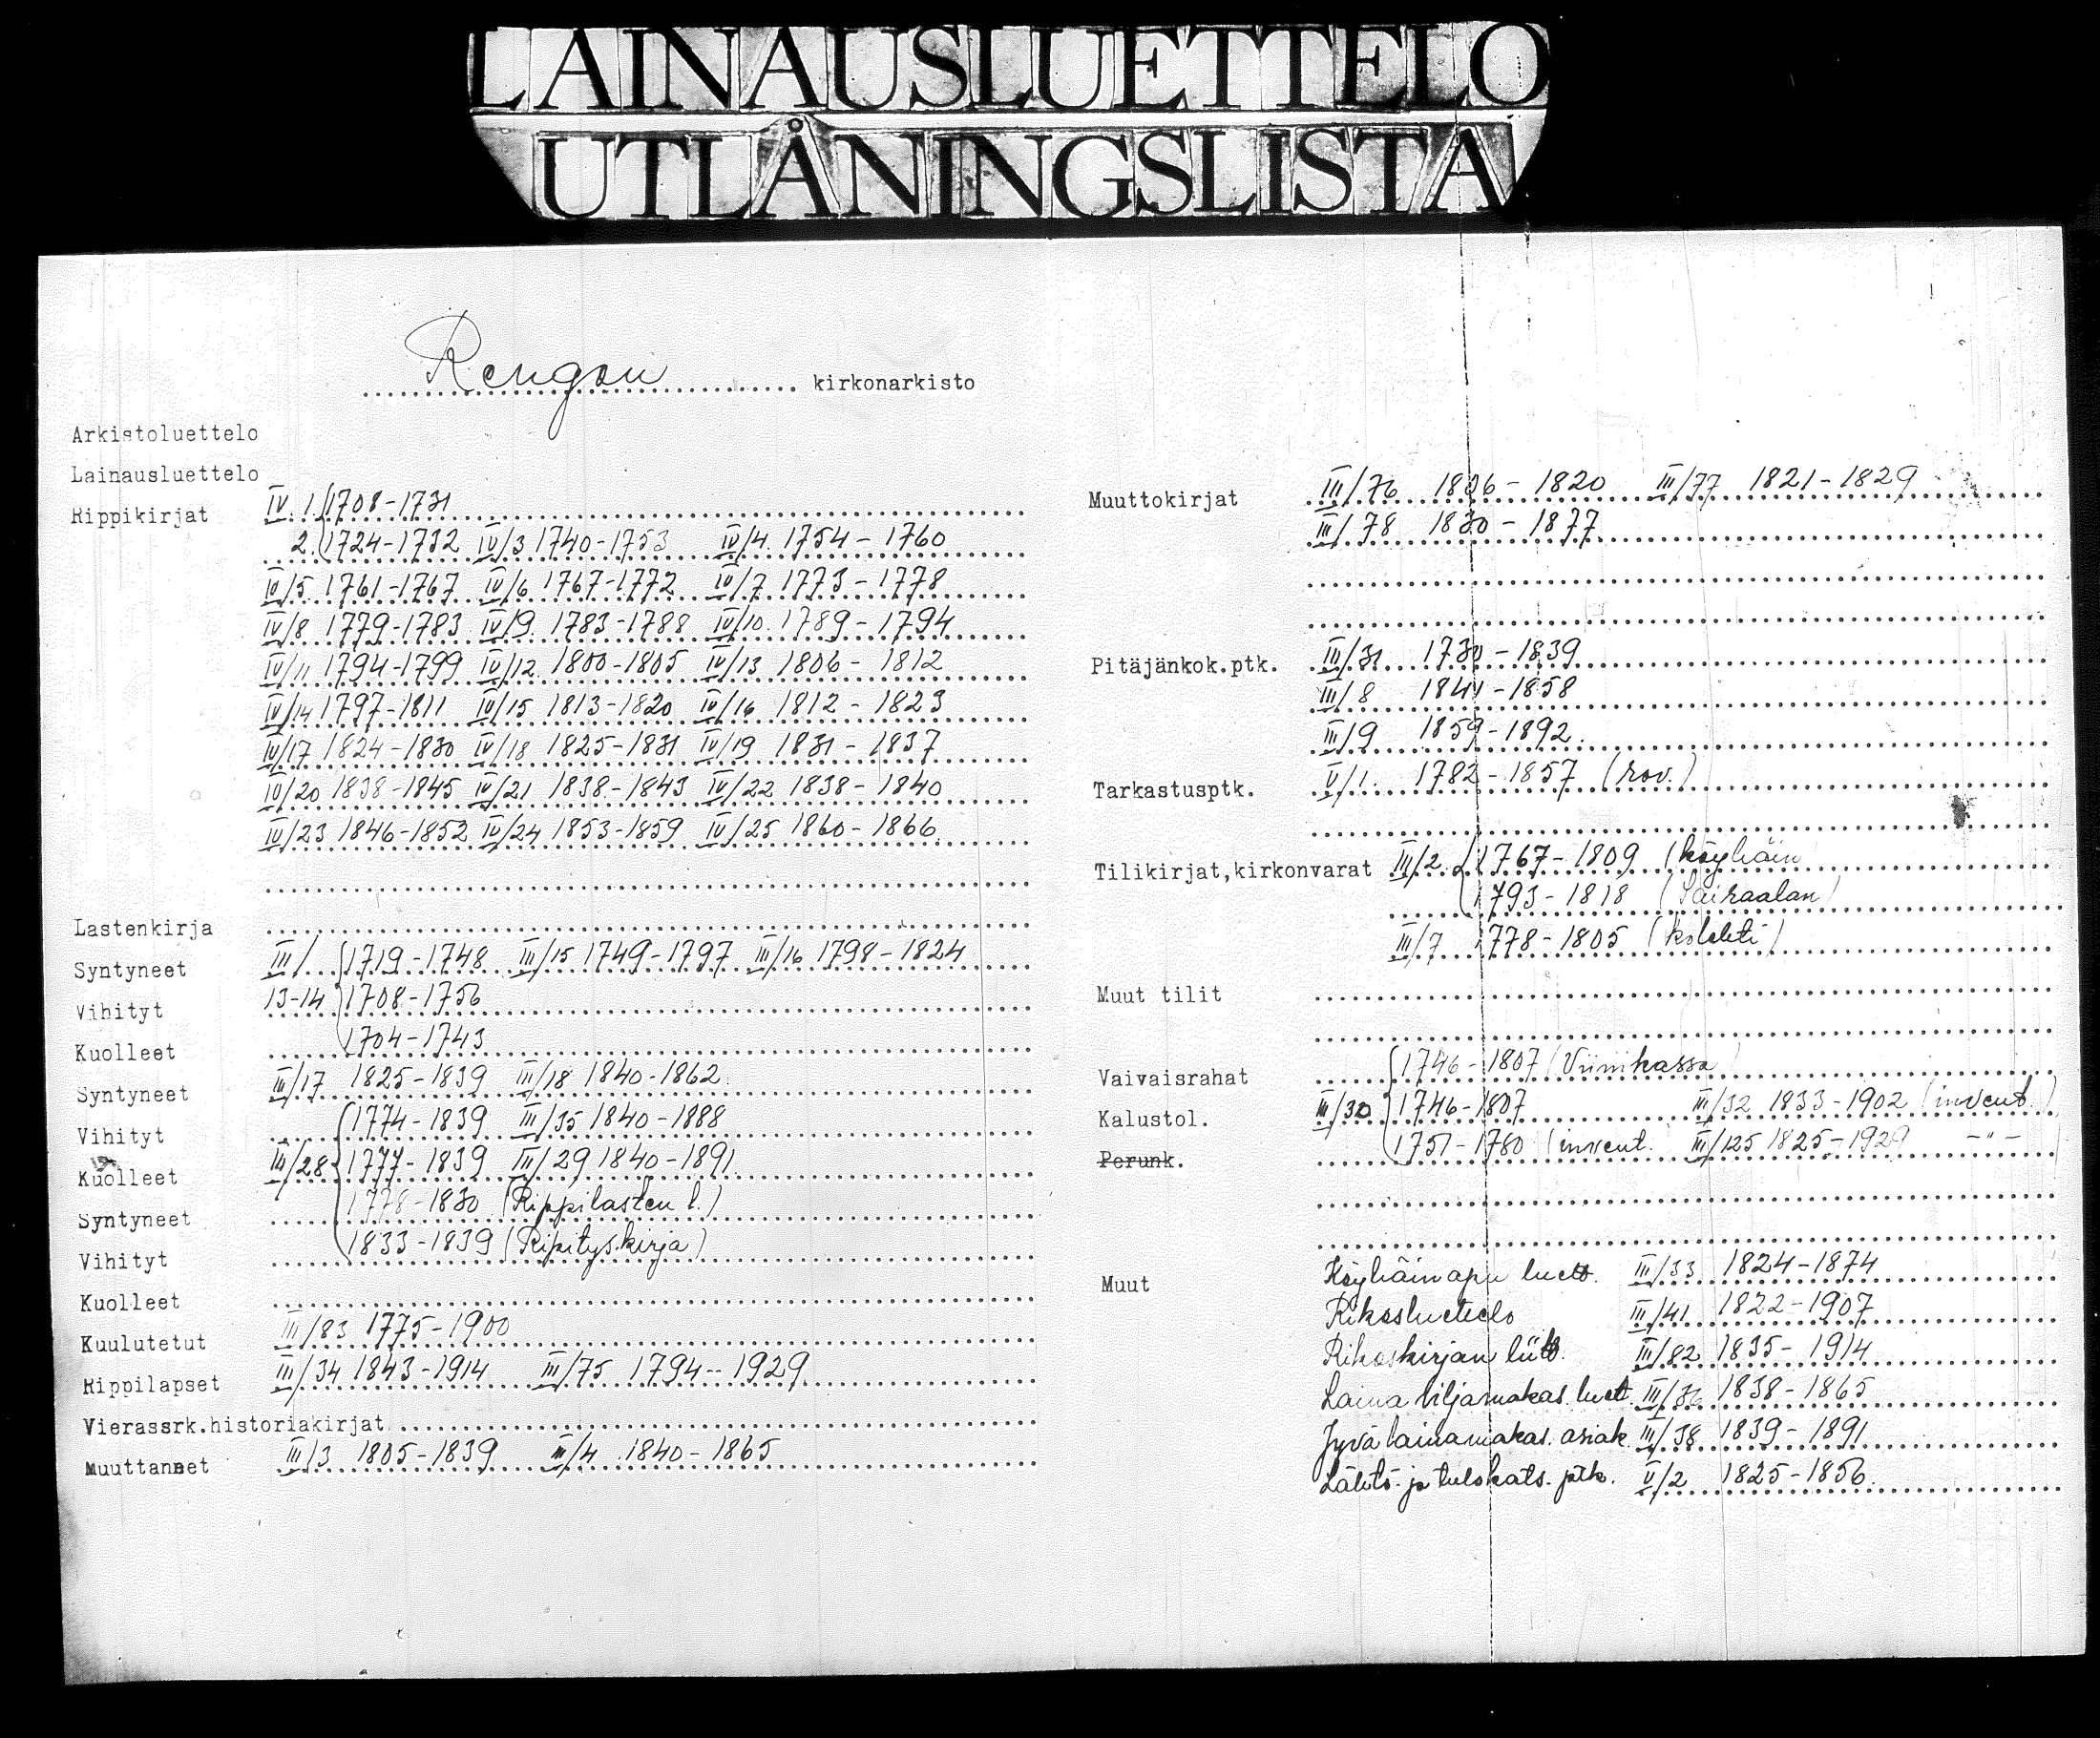 LAINAUSLUETTELO
UTLÅNINGSLISTA
Rengon kirkonarkisto
Arkistoluettelo
Lainausluettelo
Rippikirjat IV. 1. 1708-1731
2. 1724-1732 IV/3 1740-1753 IV/4. 1754-1760
IV/5 1761-1767 IV/6 1767-1772 IV/7 1773-1778
IV/8 1779-1783 IV/9 1783-1788 IV/10 1789-1794
IV/11 1794-1799 IV/12 1800-1805 IV/13 1806-1812
IV/14 1797-1811 IV/15 1813-1820 IV/16 1812-1823
IV/17 1824-1830 IV/18 1825-1831 IV/19 1831-1837
IV/20 1838-1845 IV/21 1838-1843 IV/22 1838-1840
IV/23 1846-1852 IV/24 1853-1859 IV/25 1860-1866
Lastenkirja
Syntyneet III/ 1719-1748 III/15 1749-1797 III/16 1798-1824
Vihityt 13-14 1708-1756
Kuolleet 1704-1743
Syntyneet III/17 1825-1839 III/18 1840-1862
Vihityt 1774-1839 III/35 1840-1888
Kuolleet III/28 1777-1839 III/29 1840-1891
Syntyneet 1778-1830 (Rippilasten l.)
Vihityt 1833-1839 (Ripityskirja)
Kuolleet
Kuulutetut III/83 1775-1900
Rippilapset III/34 1843-1914 III/75 1794-1929
Vierassrk.historiakirjat
Muuttaneet III/3 1805-1839 III/4 1840-1865
Muuttokirjat III/76 1806-1820 III/77 1821-1829
III/78 1830-1877
Pitäjänkok.ptk. III/31 1730-1839
III/8 1841-1858
III/9 1859-1892
Tarkastusptk. V/1. 1782-1857 (rov.)
Tilikirjat,kirkonvarat III/2 1767-1809 (köyhäin
1793-1818 (Sairaalan)
III/7 1778-1805 (kolehti)
Muut tilit
Vaivaisrahat 1746-1807 (Viinikassa)
Kalustol. III/30 1746-1807 III/32 1833-1902 (invent.)
Perunk. 1751-1780 (invent. III/125 1825-1929 -"-
Muut Köyhäinapu luett. III/33 1824-1874
Rikosluettelo III/41 1822-1907
Rikoskirjan liitt. III/82 1835-1914
Laina viljamakas. luett. III/36 1838-1865
Jyvä lainamakas. asiak. III/38 1839-1891
Lähtö- ja tulokats. ptk. V/2 1825-1856